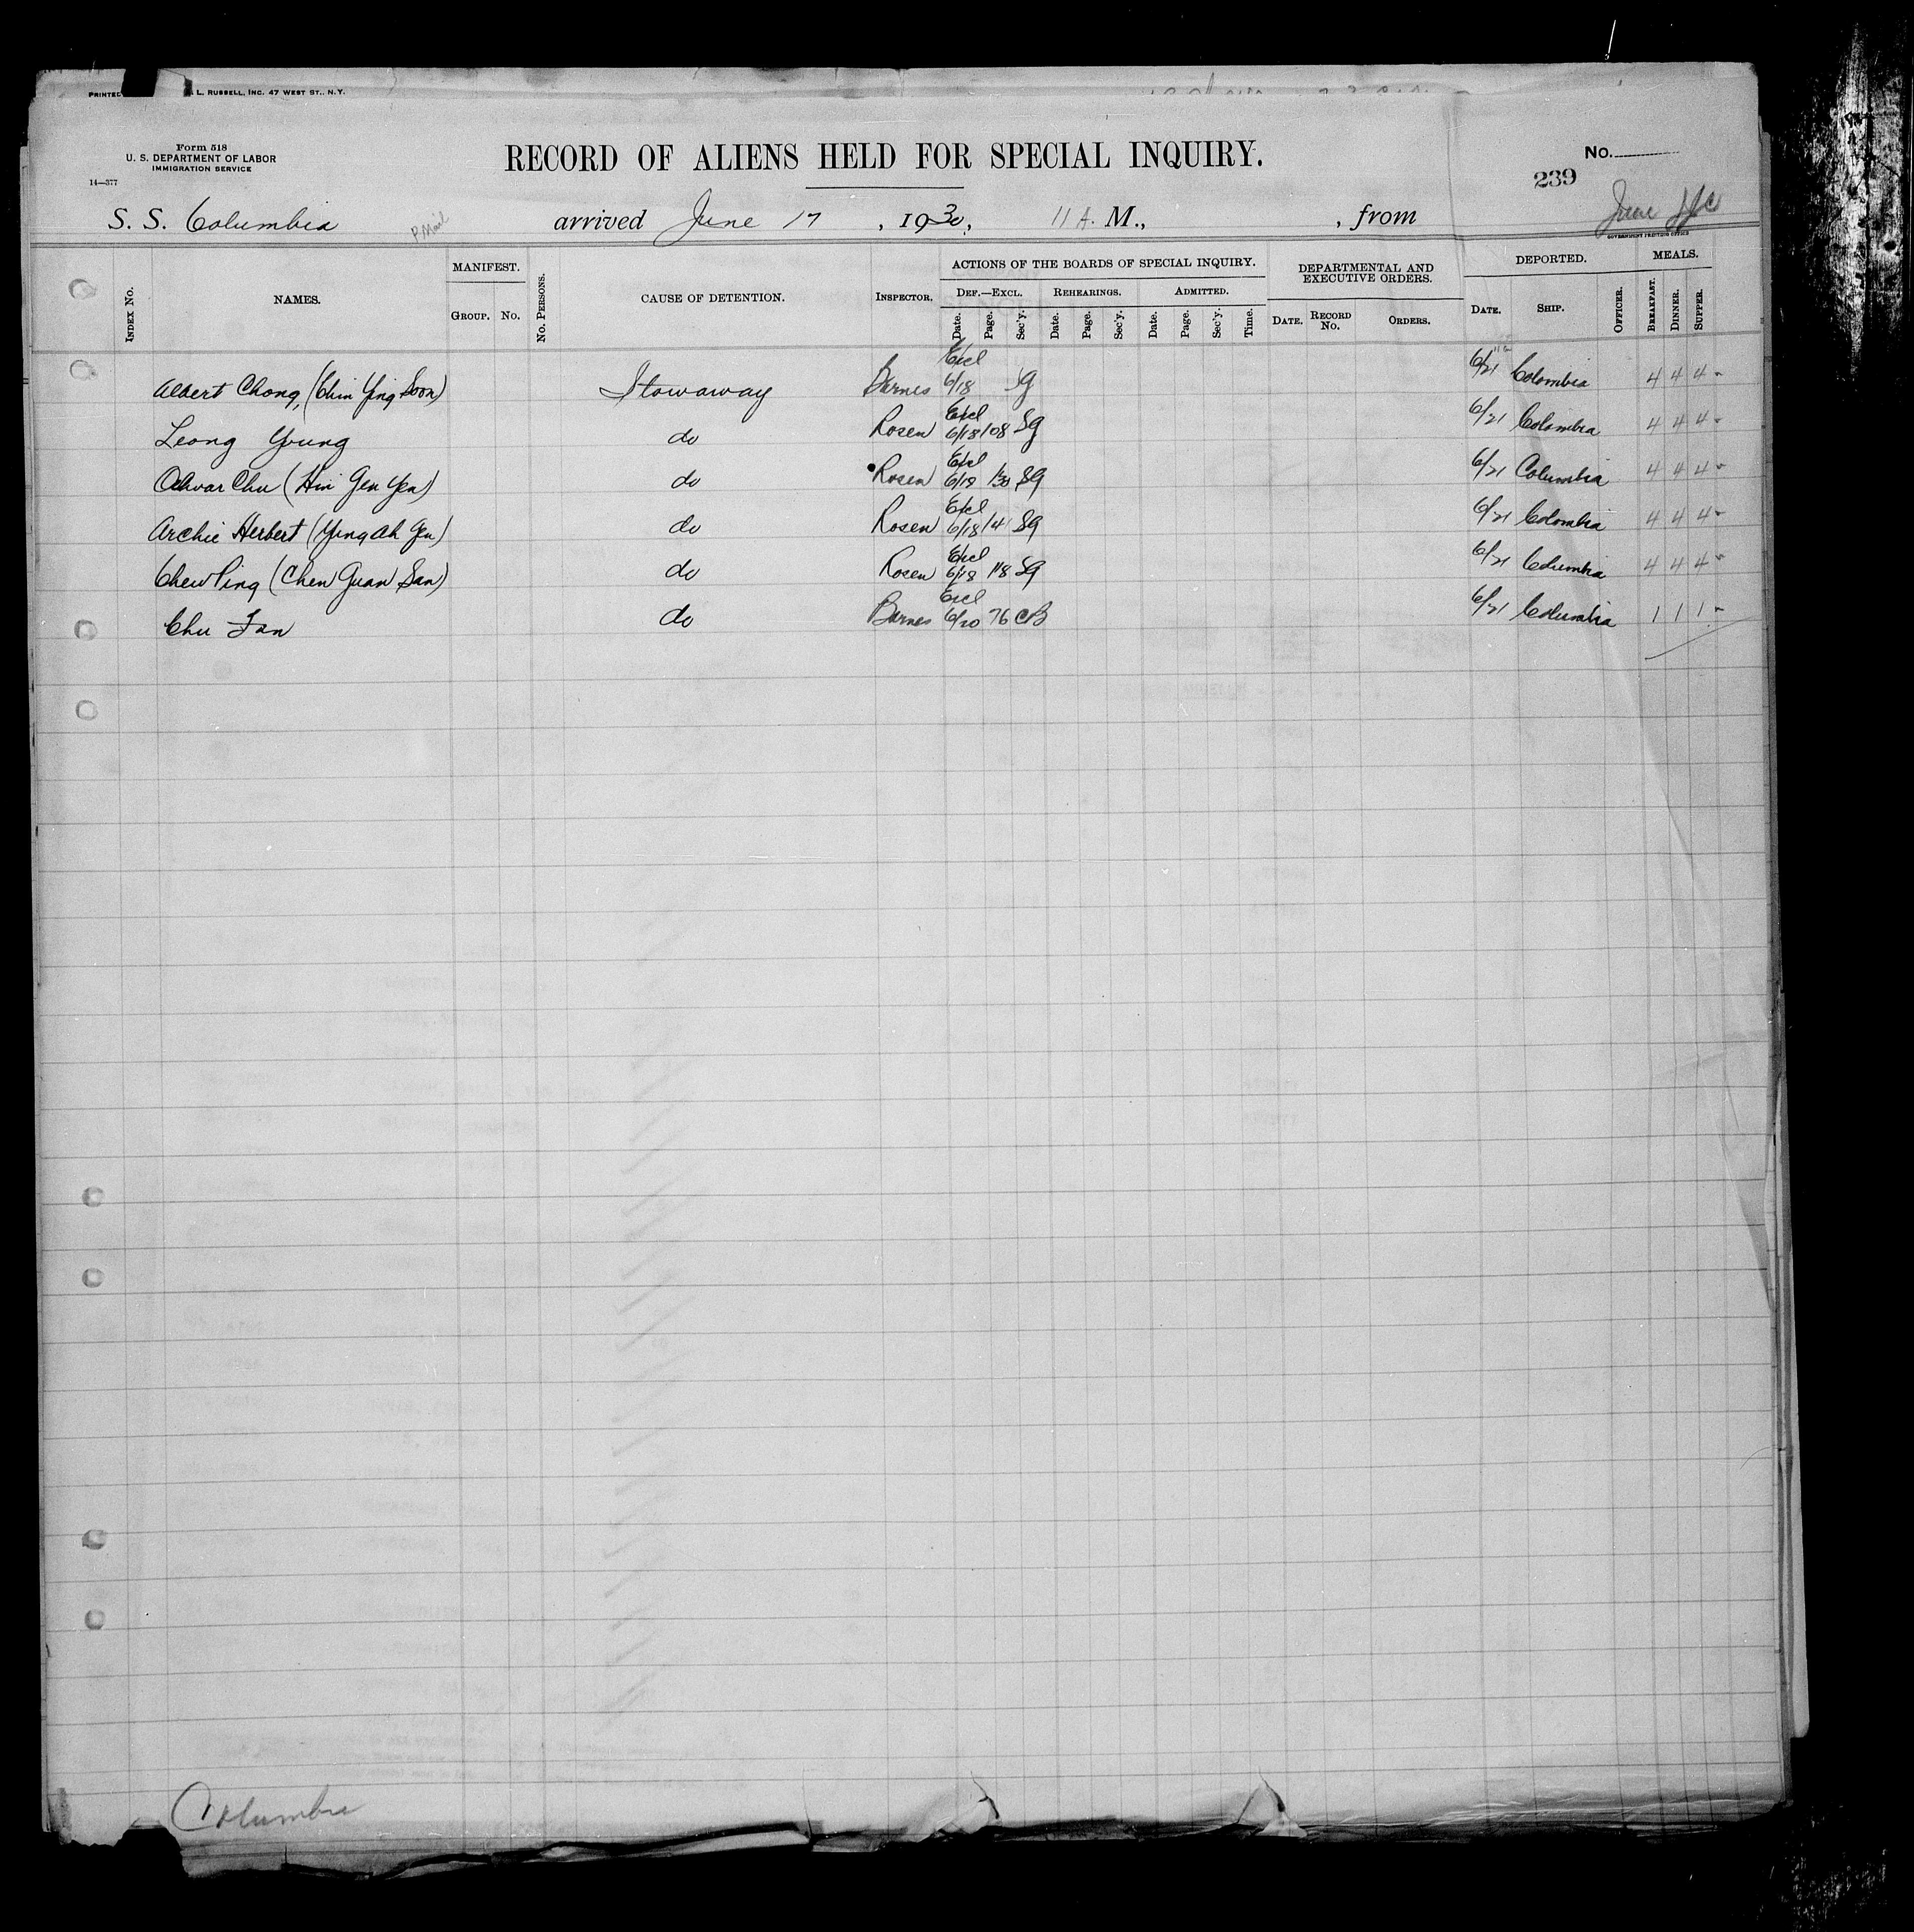 PRINTED L. RUSSELL, INC. 47 WEST ST., N.Y.
Form 518
U. S. DEPARTMENT OF LABOR
IMMIGRATION SERVICE
14—377
RECORD OF ALIENS HELD FOR SPECIAL INQUIRY.
No.
239
S. S. Columbia P Mail arrived June 17, 1930, 11 A. M., , from June
GOVERNMENT PRINTING OFFICE
INDEX No. NAMES. MANIFEST. GROUP. No. No. PERSONS. CAUSE OF DETENTION. INSPECTOR. ACTIONS OF THE BOARDS OF SPECIAL INQUIRY. DEPARTMENTAL AND EXECUTIVE ORDERS. DEPORTED. MEALS.
DEF.—EXCL. REHEARINGS. ADMITTED.
Date. Page. Sec'y. Date. Page. Sec'y. Date. Page. Sec'y. Time. DATE. RECORD No. ORDERS. DATE. SHIP. OFFICER. BREAKFAST. DINNER. SUPPER.
Albert Chong, (Chin Ying Soon) Stowaway Barnes Excl 6/18 SG 6/21 Colombia 4 4 4
Leong Young do Rosen Excl 6/18 108 SG 6/21 Colombia 4 4 4
Chu (Hin Gen Yen) do Rosen Excl 6/18 130 SG 6/21 Columbia 4 4 4
Archie Herbert (Yung Ah Gen) do Rosen Excl 6/18 141 SG 6/21 Colombia 4 4 4
Chew Ping (Chen Guan San) do Rosen Excl 6/18 118 SG 6/21 Columbia 4 4 4
Chu Fan do Barnes Excl 6/20 76 CB 6/21 Columbia 1 1 1
Columbia